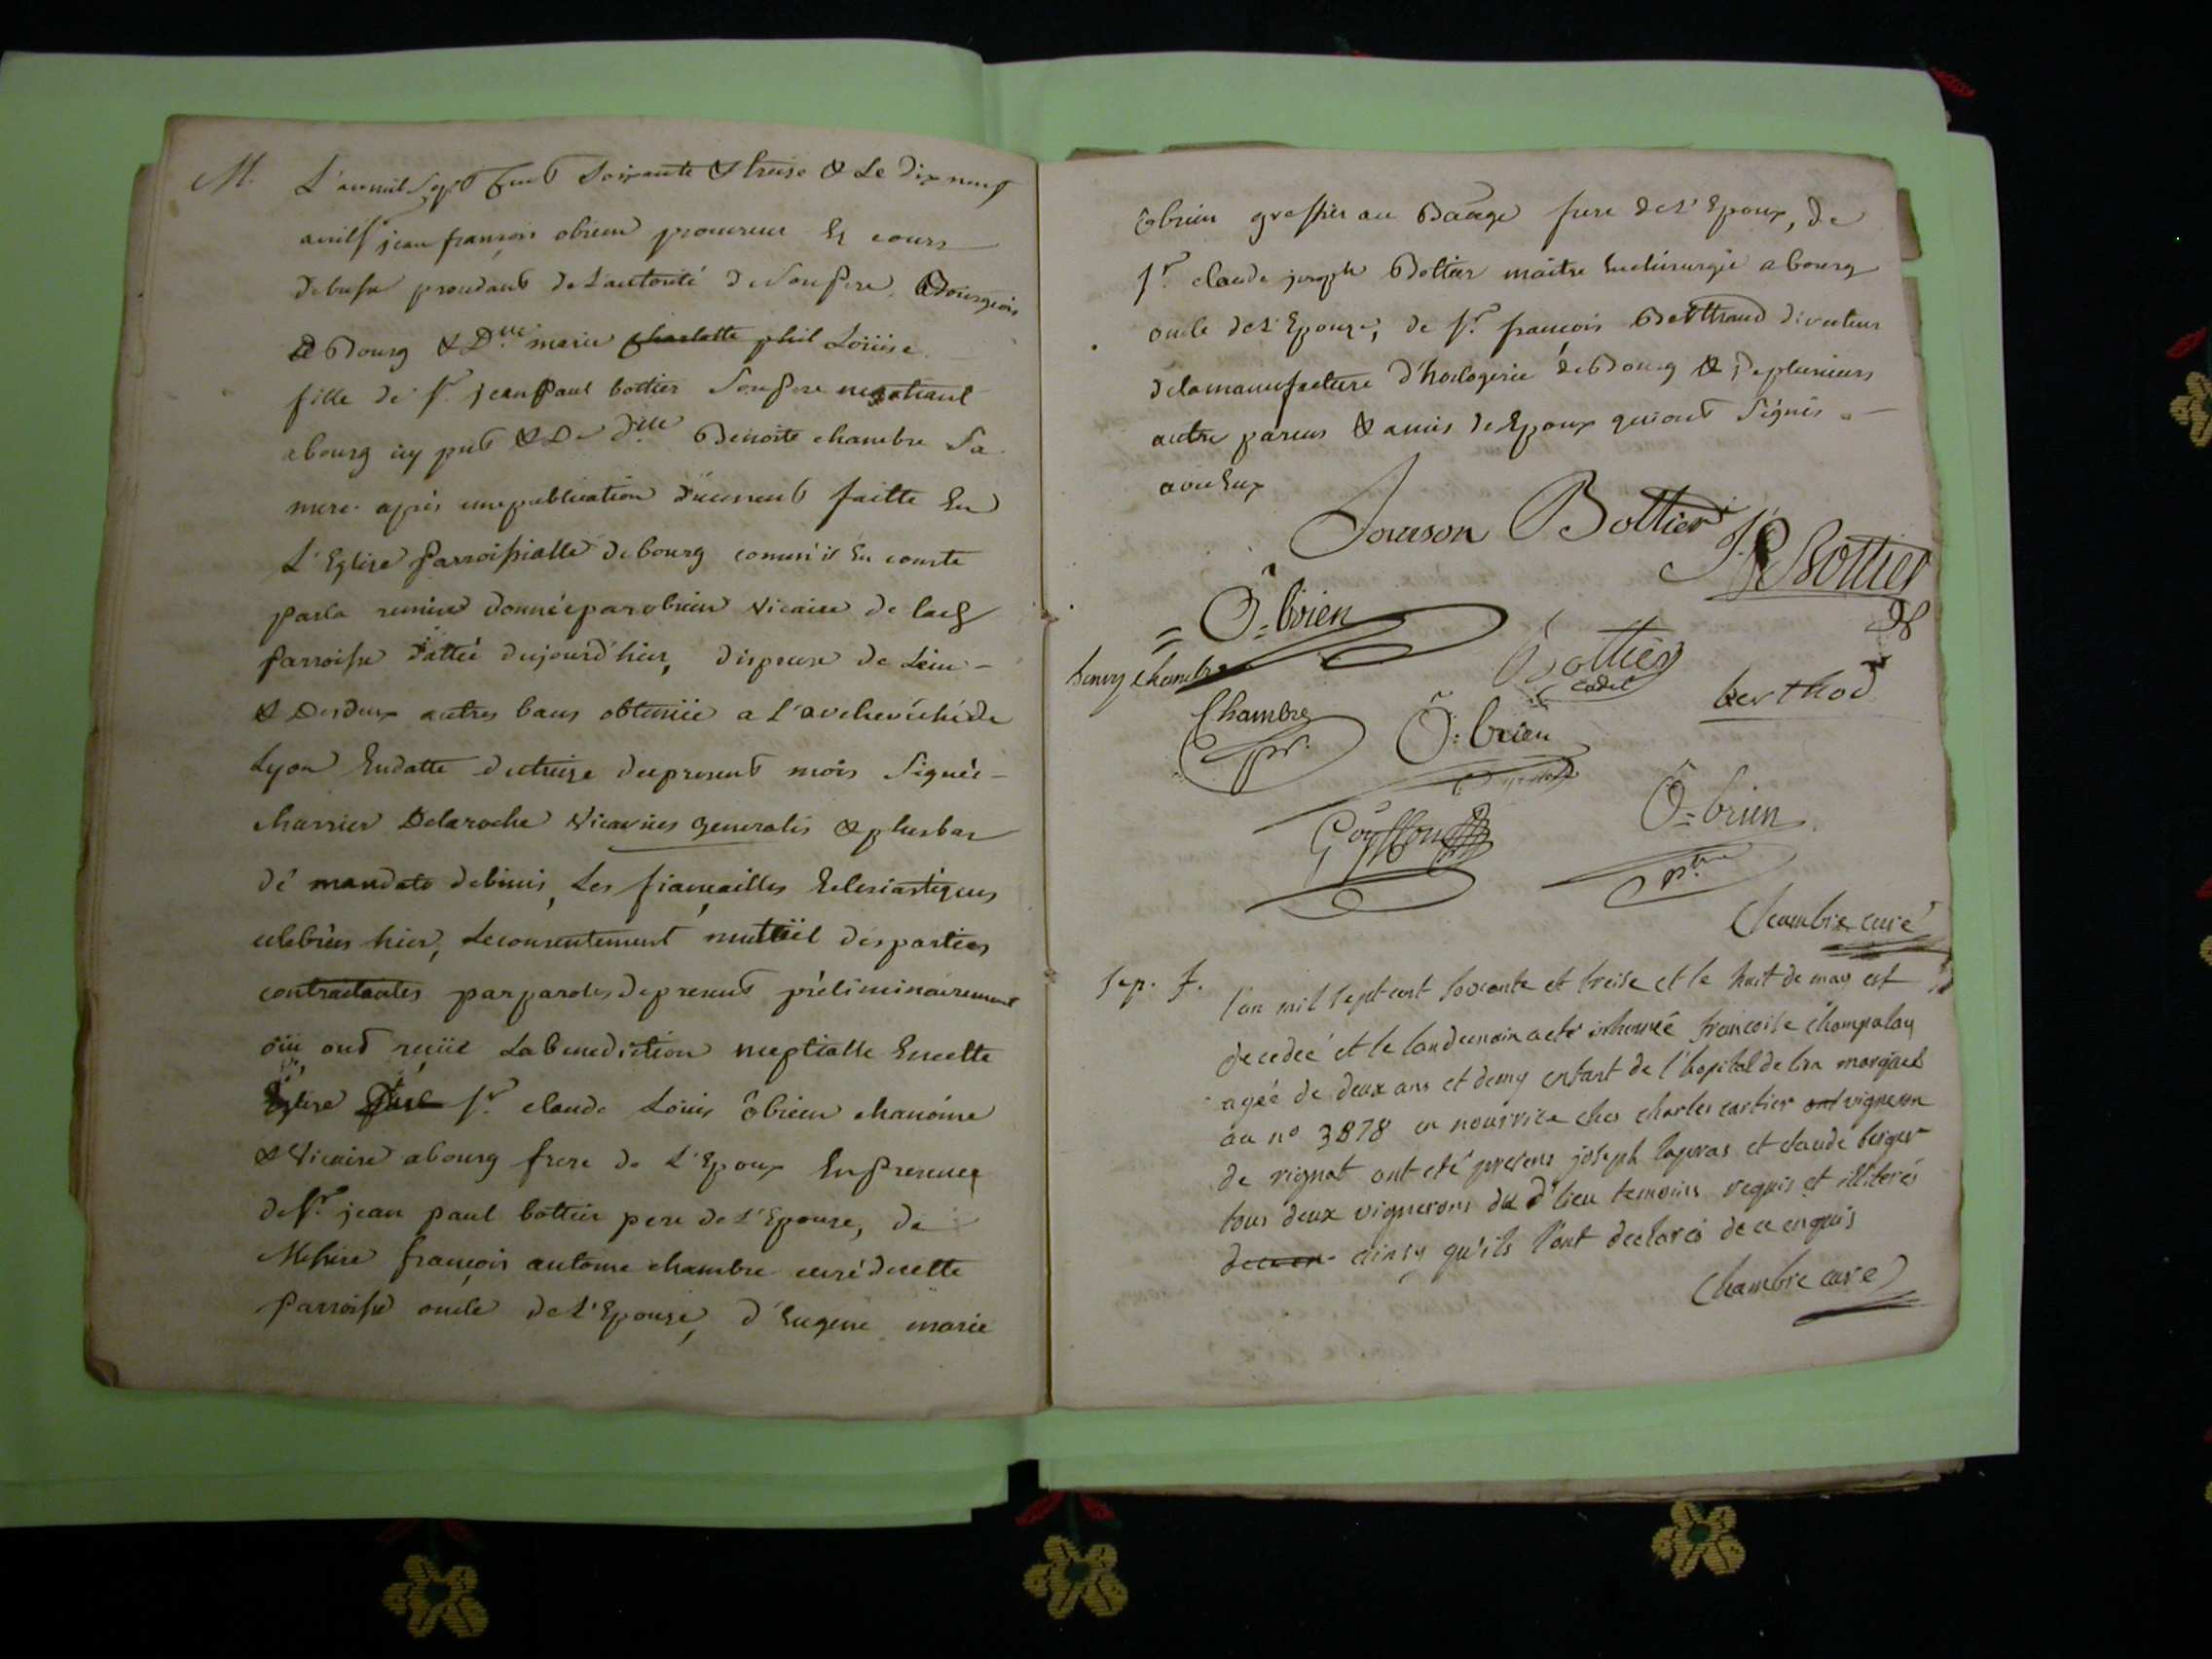 M. L'an mil sept cent soixante & treise & Le dix neuf
avril sr jean françois obrien procureur Es cours
de bresse procedant de L'autorité de Son Pere, Bourgeois
de Bourg & Dlle marie charlotte phil Loüise
fille de sr jean Paul bottier Son Pere negotiant
a bourg icy pnt & De dlle Benoite chambre Sa
mere. après une publication düement faitte En
L'Eglise Parroissialle de bourg comm'il En conste
par la remise donnée par obrien vicaire de lad
Parroisse dattée du jourd'hier, dispense de Lieu -
& Des deux autres bans obtenüe a L'archevêché de
Lyon En datte du treize du present mois Signée -
charrier Delaroche vicarius generalis & plus bas
de mandato debinis, Les fiançailles Eclesiastiques
celebrées hier, Le consentement mutüel des parties
contractantes par paroles de present préliminairement
oüi ont reçüe La benediction nuptialle En cette
Eglise par sr claude Loüis ôbrien chanoine
& Vicaire a bourg frere de L'Epoux En Presence
de sr jean paul bottier pere de L'Epouse, de
Messire françois antoine chambre curé de cette
Parroisse oncle de L'Epouse, d'Eugene marie
ôbrien greffier au Bauge frere de L'Epoux, de
sr claude joseph Bottier maitre En chirurgie a bourg
oncle de L'Epouse, de sr françois Betthaud directeur
de la manufacture d'horlogerie de Bourg & de plusieurs
autre parens & amis des Epoux qui ont Signés -
avec Eux
Bottier J P Bottier
Ô=brien
henry chambre
Bottier cadet
berthod
Chambre pr.
Ô:brien
Goyffon
Ô=brien
ptre
Chambre curé
Sep. f. l'an mil sept cent soixante et treise et le huit de may est
decedeé et le landemain a eté inhumeé françoise champalay
ageé de deux ans et demy enfant de l'hopital de lion marqueé
au no 3878 en nourrice ches charles cartier ont vigneron
de rignat ont eté presens joseph lapras et claude berger
tous deux vignerons du d' lieu temoins requis et illiterés
de ce en ainsy qu'ils l'ont declaré de ce enquis
Chambre curé